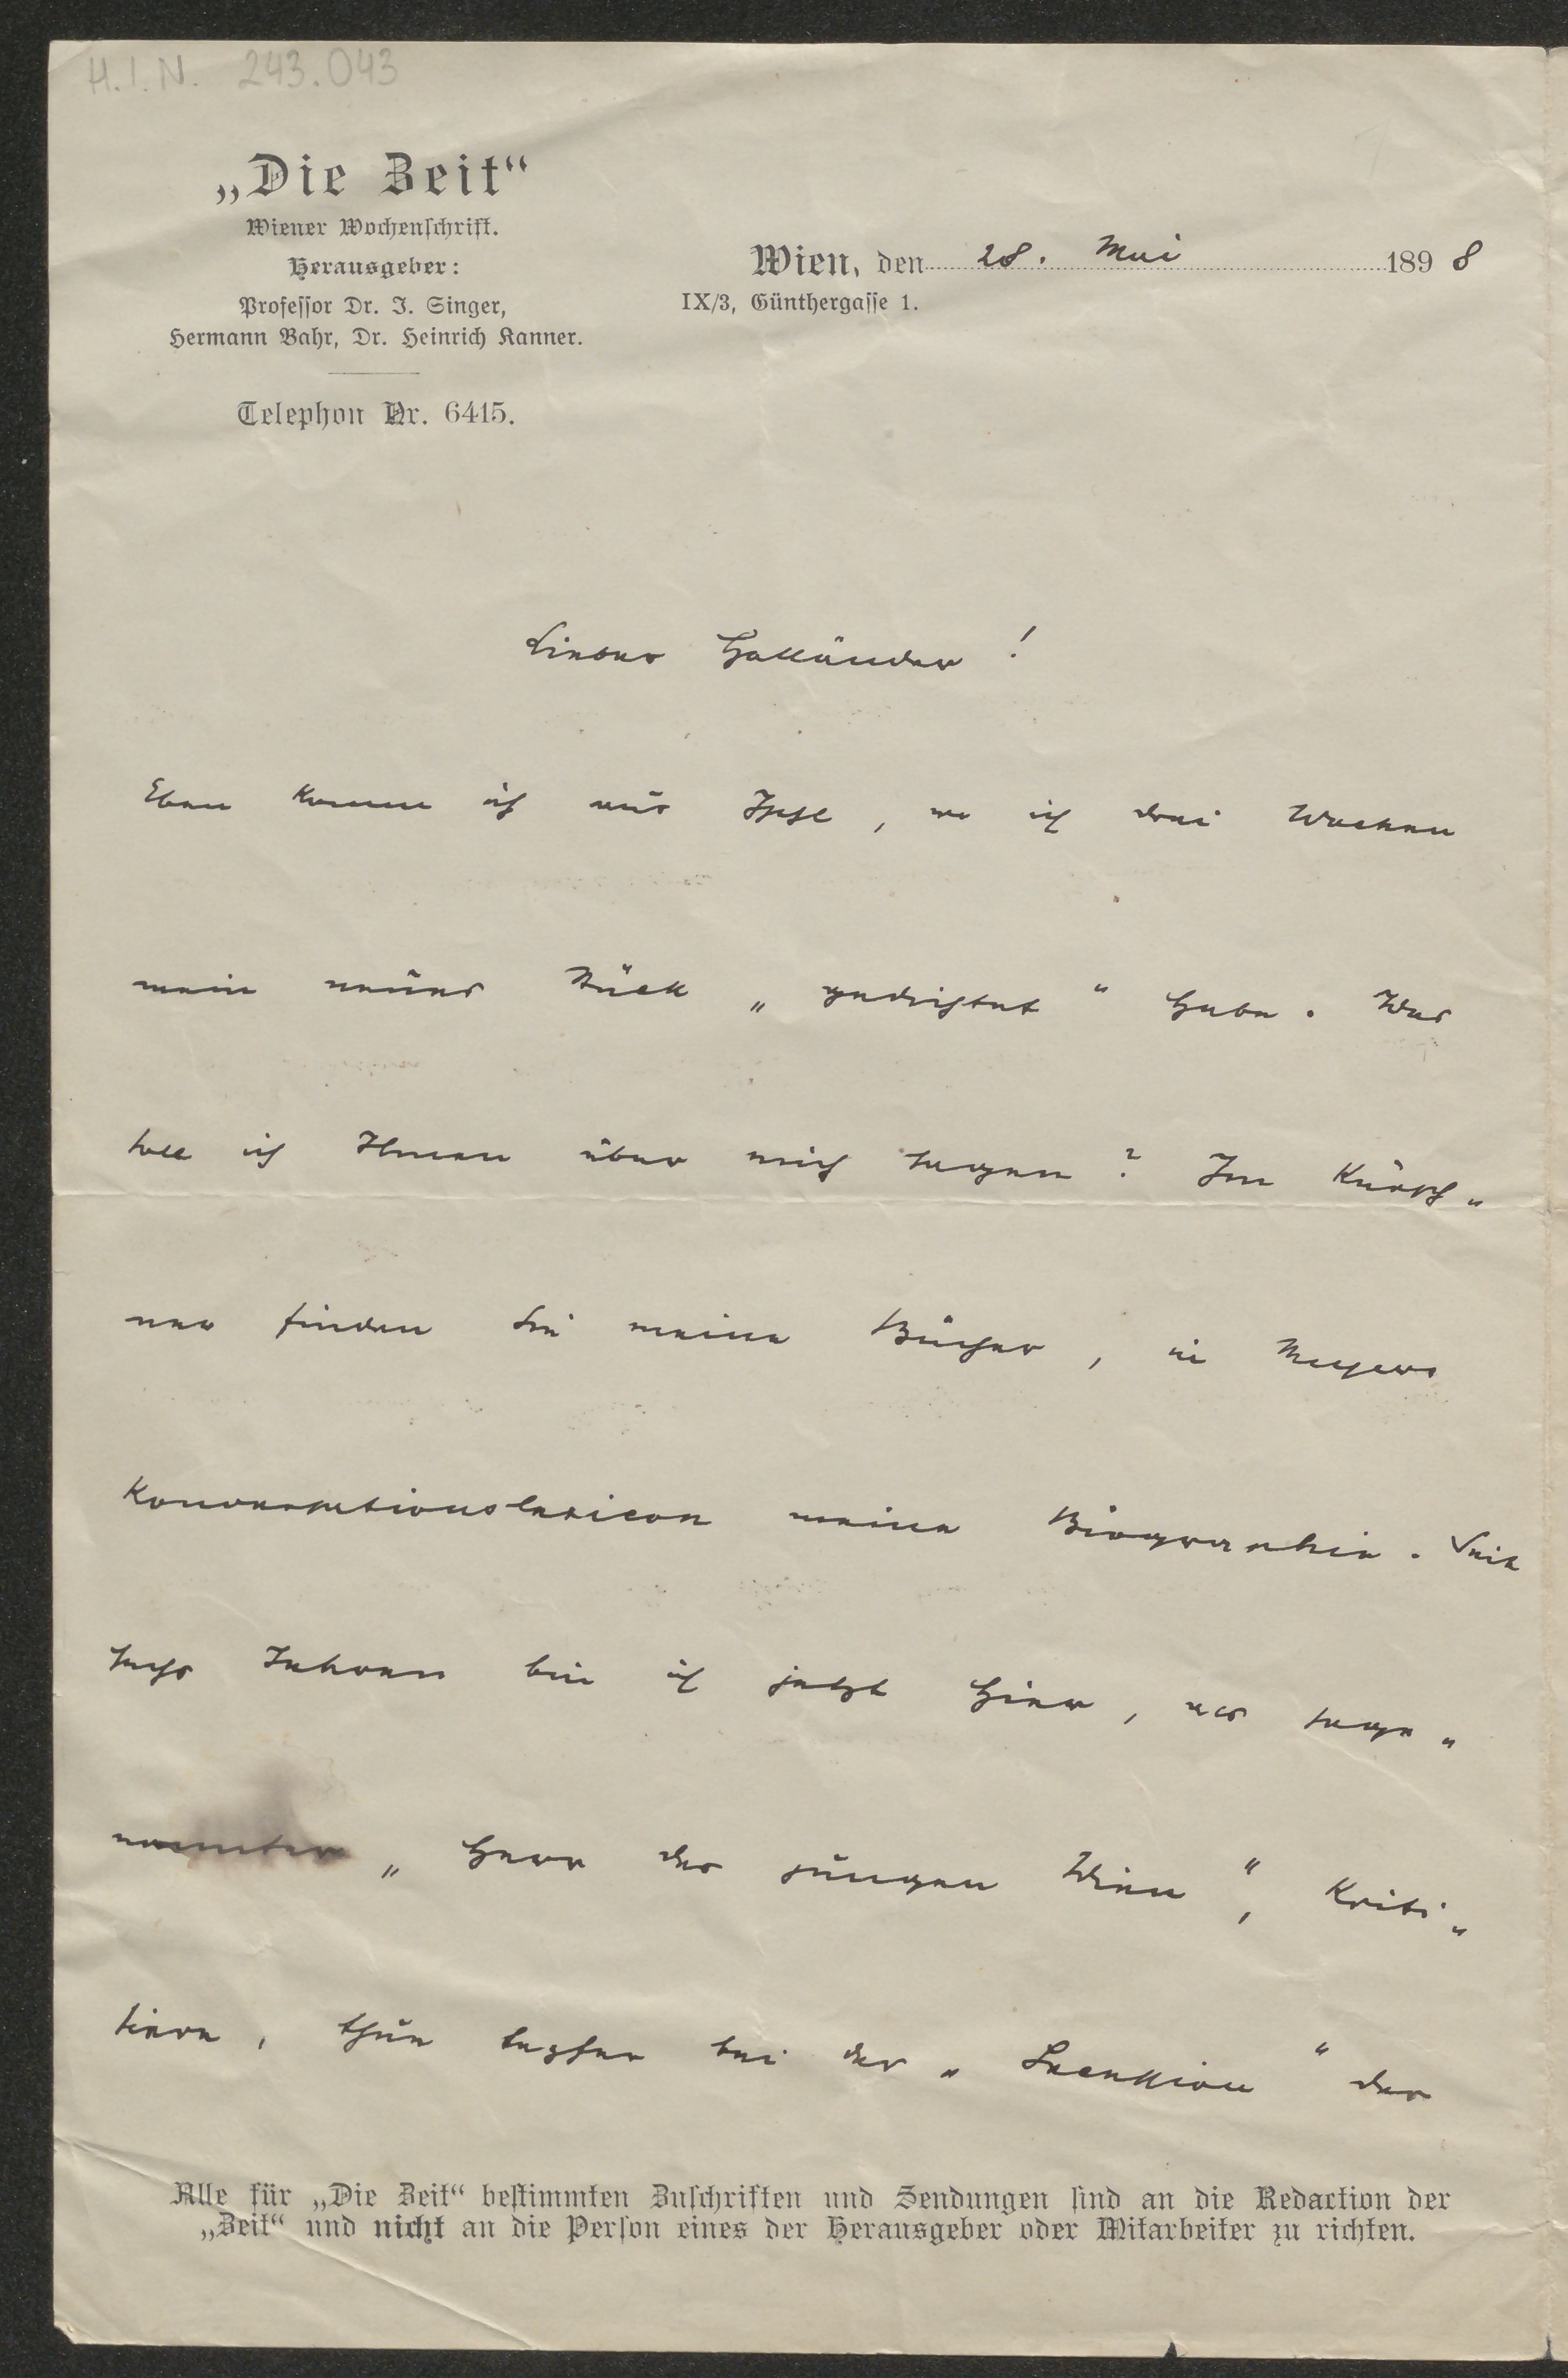 H.I.N. 243.043
„Die Zeit“
Wiener Wochenschrift.
Herausgeber:
Professor Dr. I. Singer,
Hermann Bahr, Dr. Heinrich Kanner.
Telephon Nr. 6415.
Wien, den 28. Mai 1898
IX/3, Günthergasse 1.
Lieber Holländer!
Eben komme ich aus Ischl, wo ich drei Wochen
mein neues Stück „gedichtet“ habe. Was
soll ich Ihnen über mich sagen? Im Kürsch-
ner finden Sie meine Bücher, in Meyers
Konversationslexicon meine Biographie. Seit
sechs Jahren bin ich jetzt hier, als soge-
nannter „Herr des jungen Wien“, kriti-
siere, thue tapfer bei der „Secession“ der
Alle für „Die Zeit“ bestimmten Zuschriften und Sendungen sind an die Redaction der
„Zeit“ und nicht an die Person eines der Herausgeber oder Mitarbeiter zu richten.